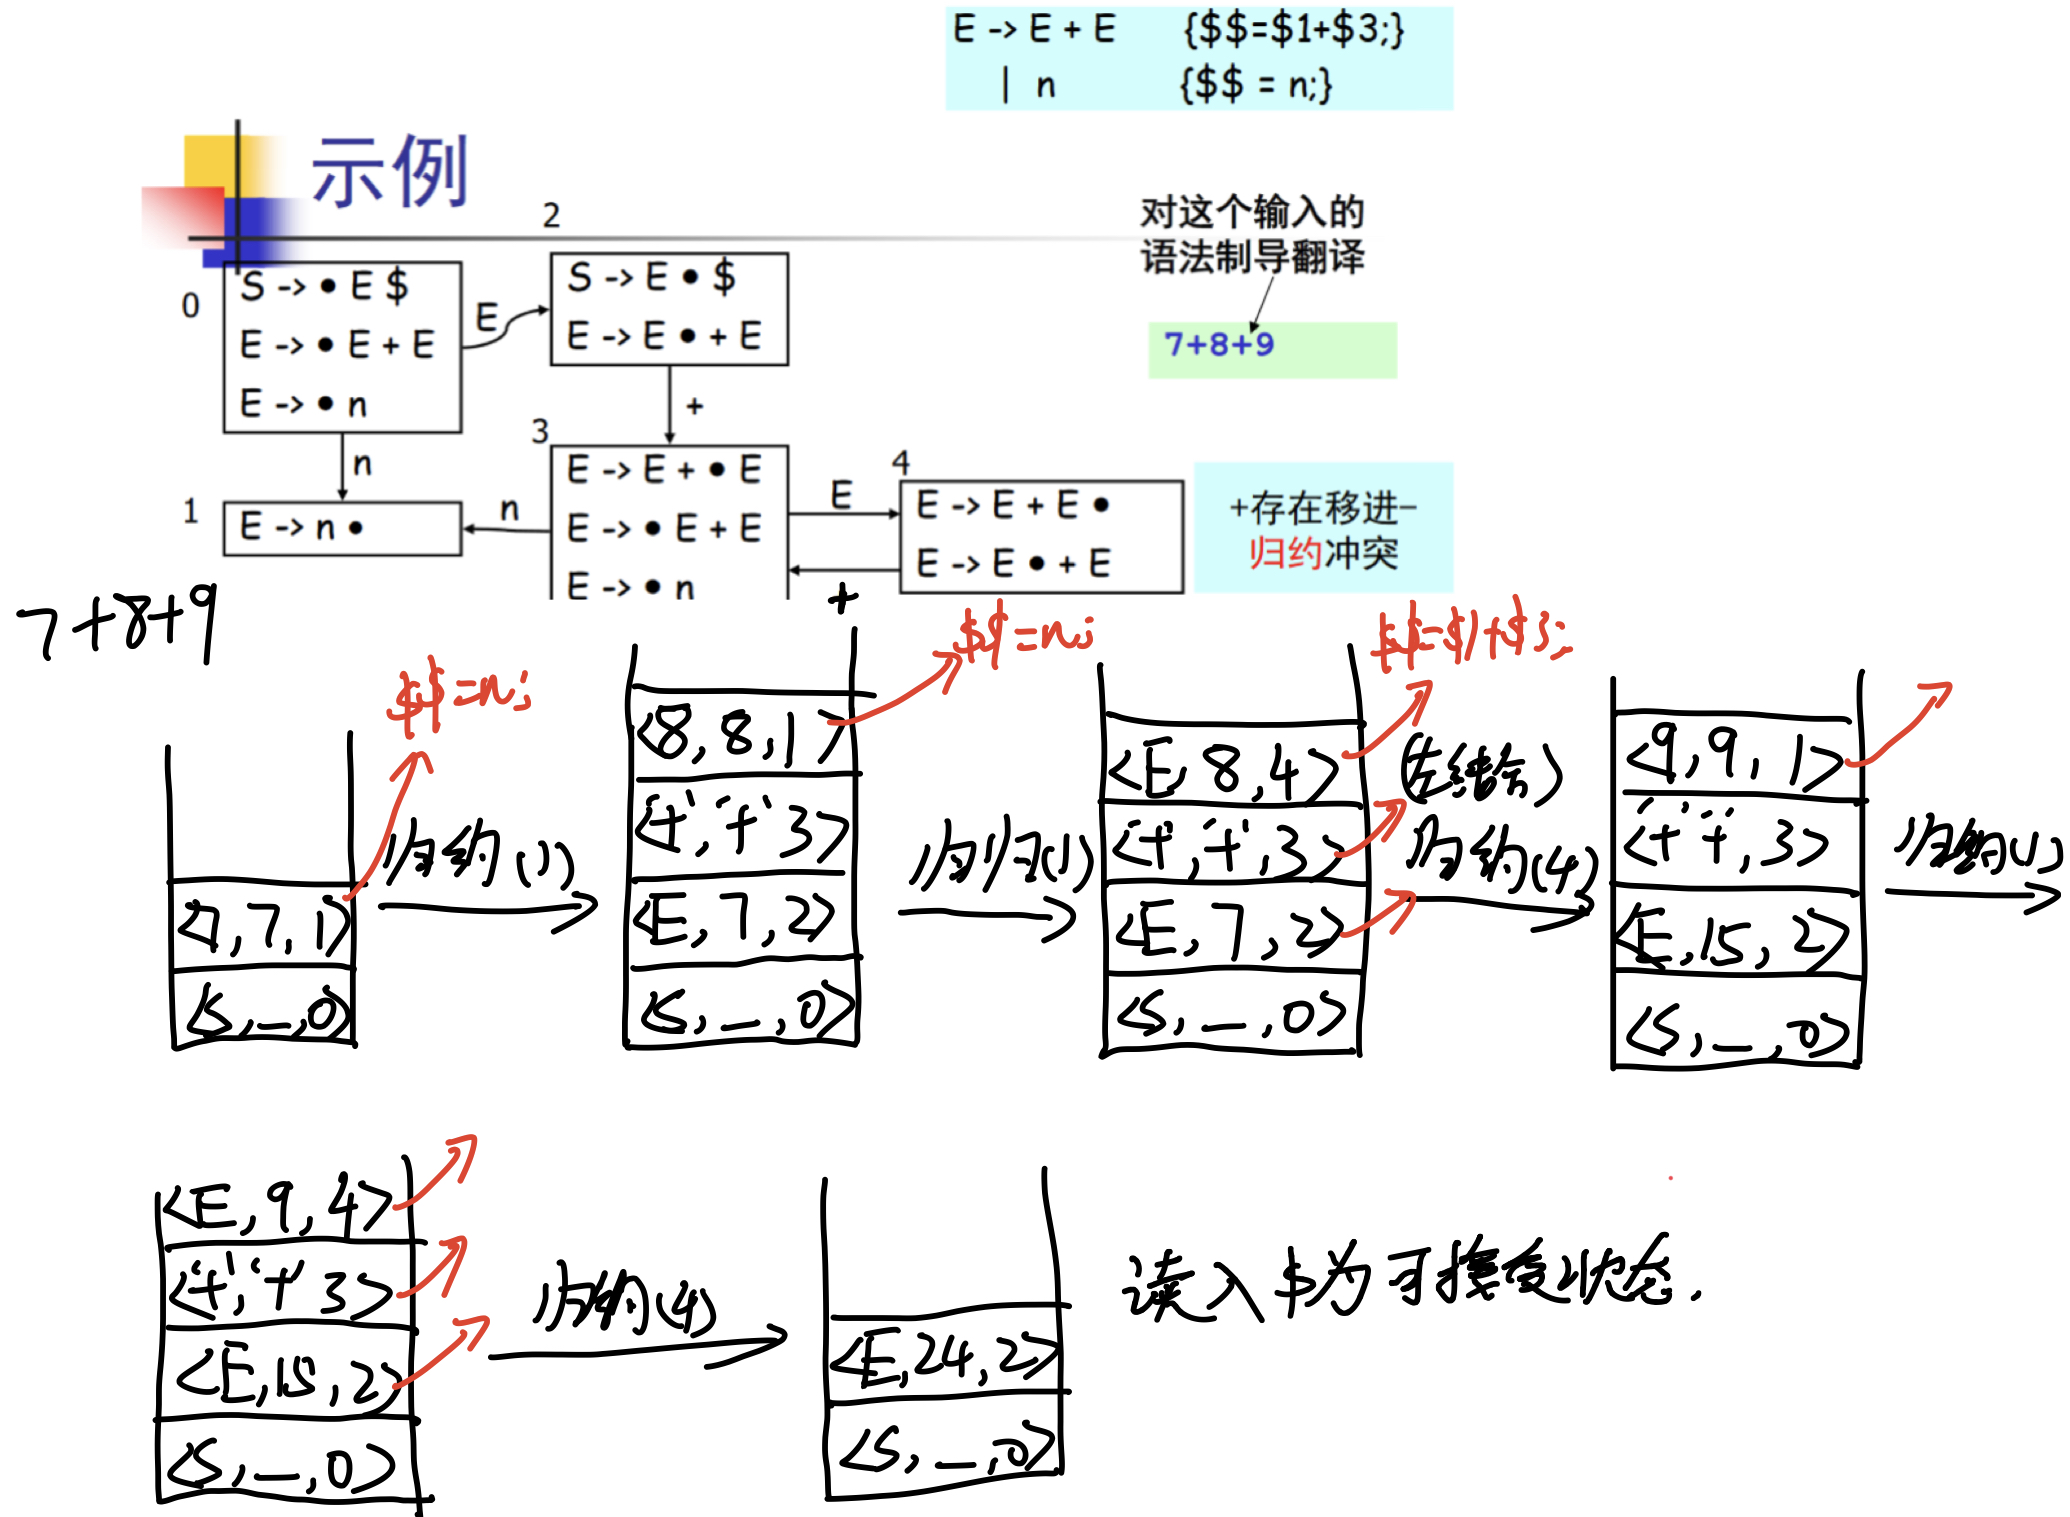 E -> E + E {$$=$1+$3;}
| n {$$ = n;}
示例
对这个输入的
语法制导翻译
7+8+9
0
S -> • E $
E -> • E + E
E -> • n
E
2
S -> E • $
E -> E • + E
+
n
1
E -> n •
n
3
E -> E + • E
E -> • E + E
E -> • n
E
4
E -> E + E •
E -> E • + E
+
+存在移进-
归约冲突
7+8+9
$$=n;
<7,7,1>
<S,_,0>
归约(1)
$$=n;
<8,8,1>
<'+','+' 3>
<E,7,2>
<S,_,0>
归归(1)
$$=$1+$3;
<E,8,4>
<'+','+',3>
<E,7,2>
<S,_,0>
(左结合)
归约(4)
<9,9,1>
<'+' '+',3>
<E,15,2>
<S,_,0>
归约(1)
<E,9,4>
<'+','+' 3>
<E,15,2>
<S,_,0>
归约(4)
<E,24,2>
<S,_,0>
读入$为可接受状态.